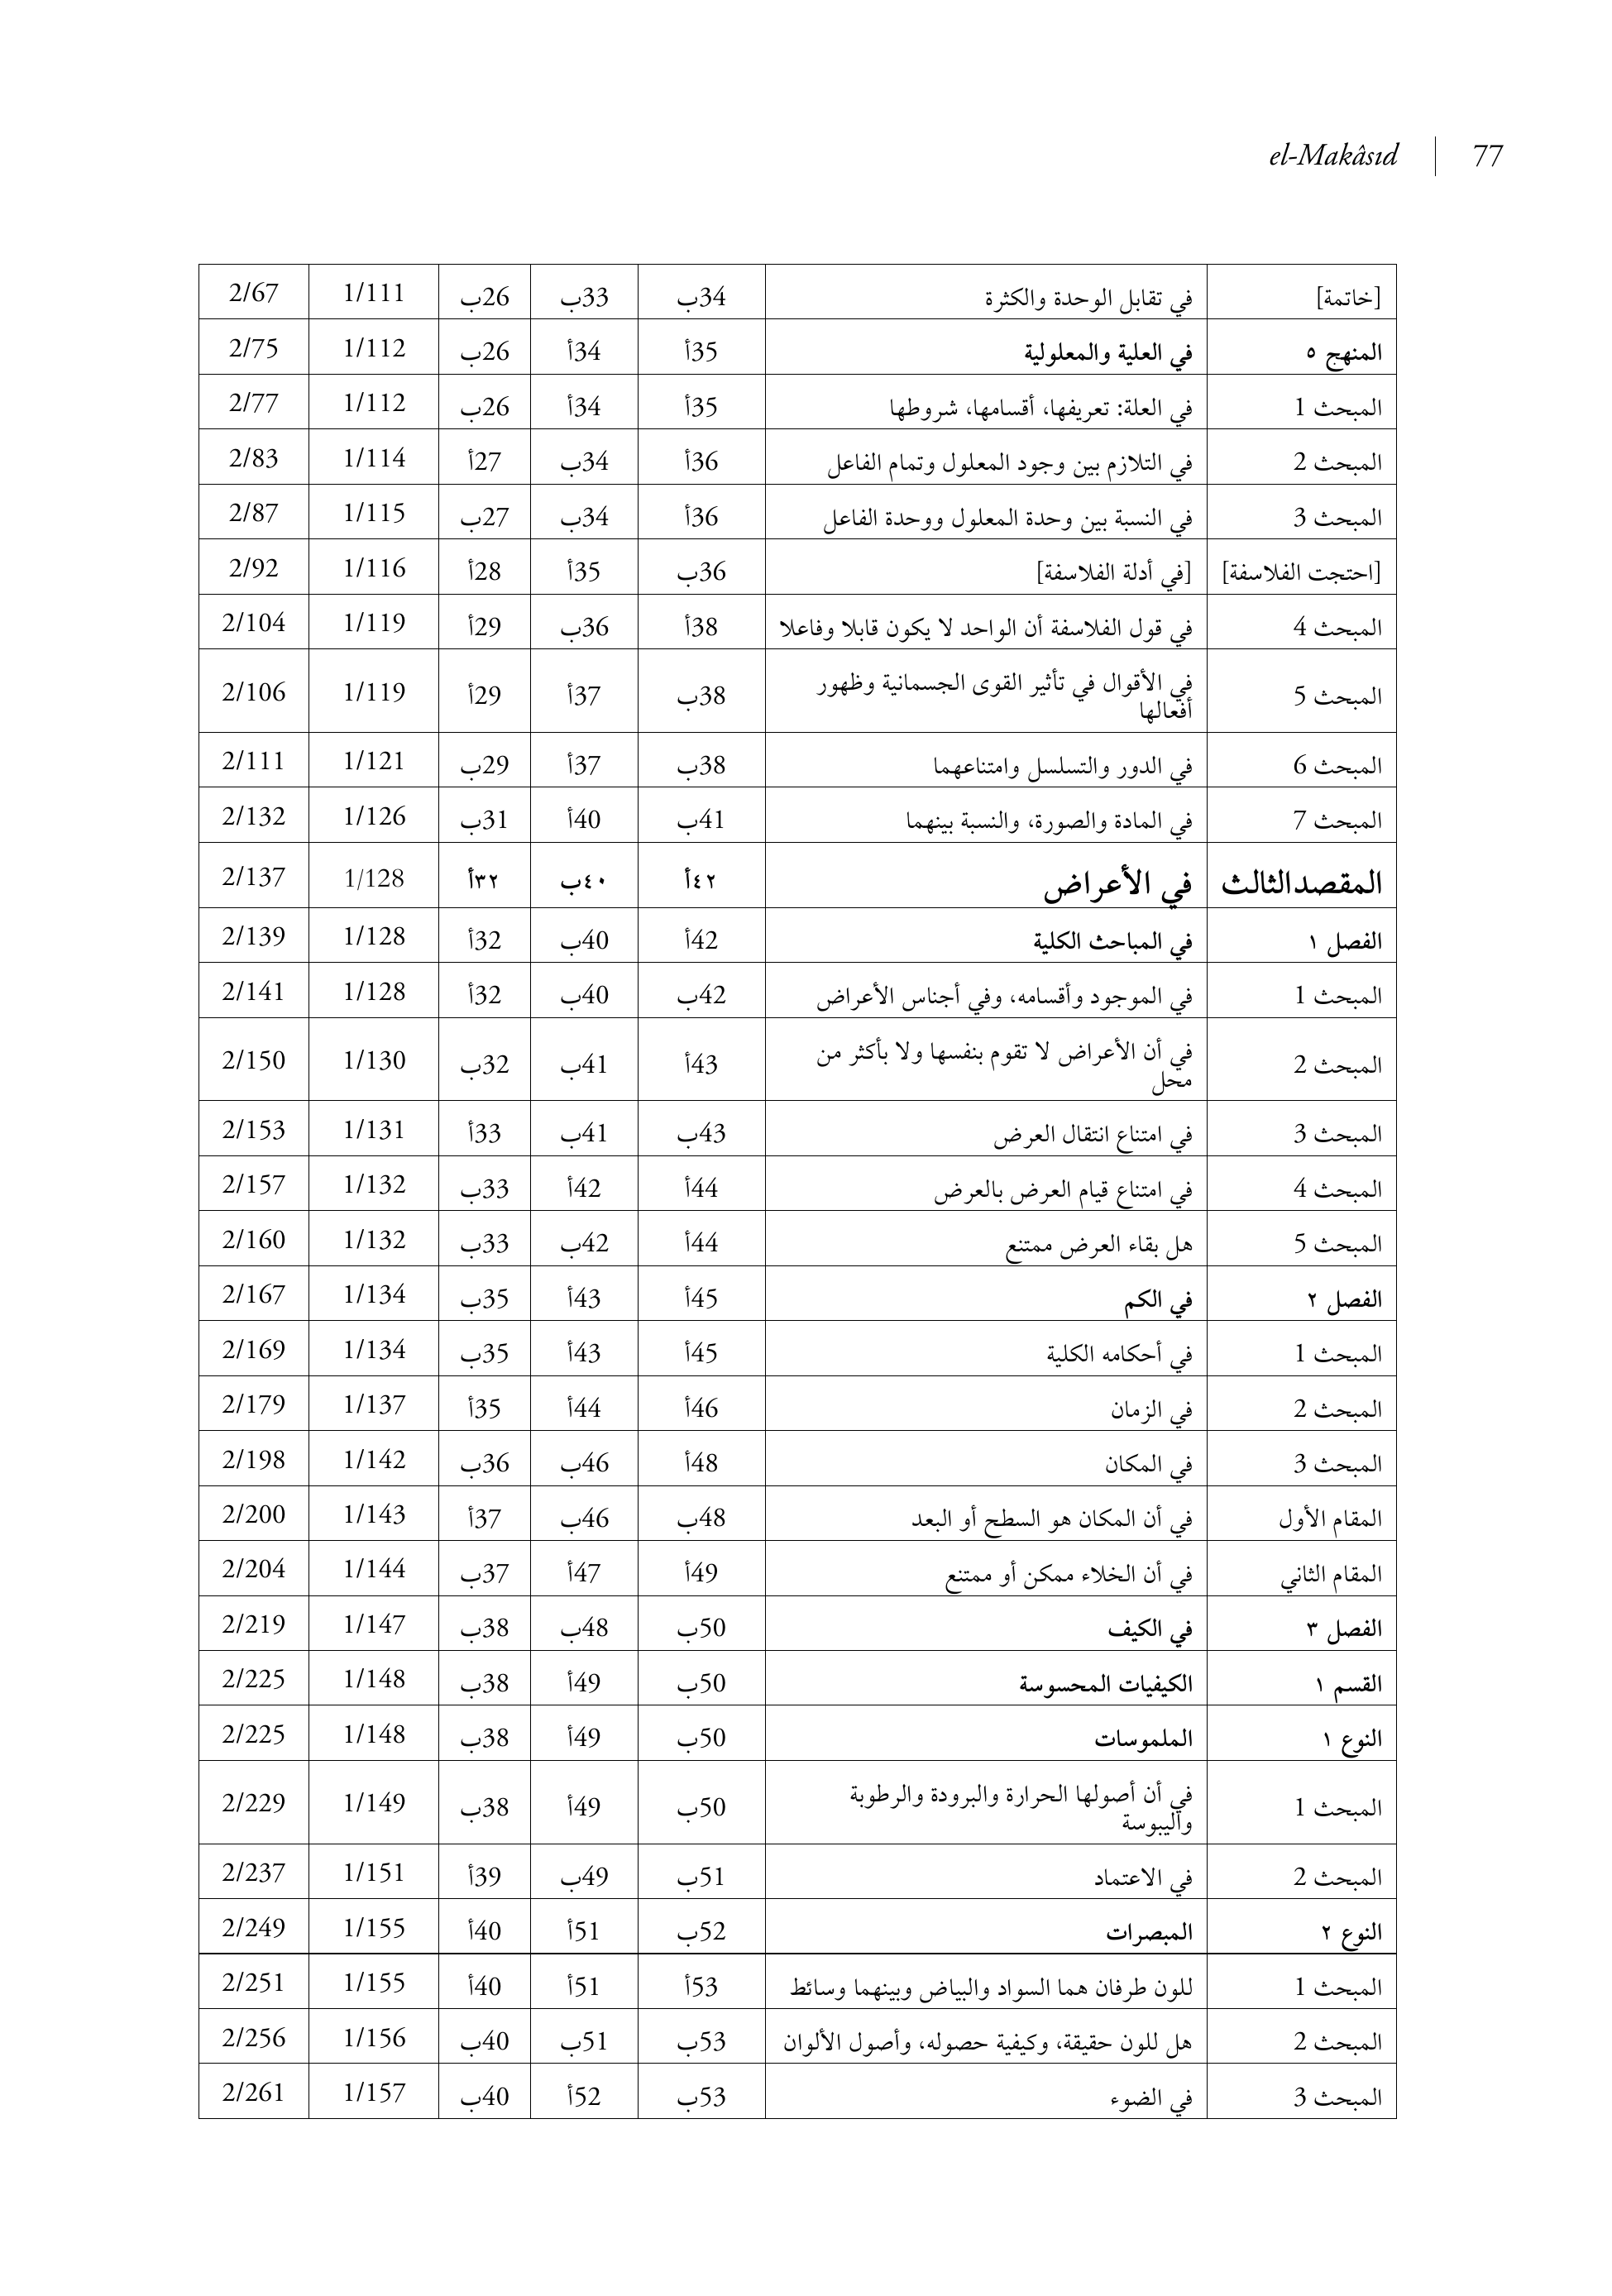 el-Makâsıd | 77
[خاتمة] في تقابل الوحدة والكثرة 34ب 33ب 26ب 1/111 2/67
المنهج ٥ في العلية والمعلولية 35أ 34أ 26ب 1/112 2/75
المبحث 1 في العلة: تعريفها، أقسامها، شروطها 35أ 34أ 26ب 1/112 2/77
المبحث 2 في التلازم بين وجود المعلول وتمام الفاعل 36أ 34ب 27أ 1/114 2/83
المبحث 3 في النسبة بين وحدة المعلول ووحدة الفاعل 36أ 34ب 27ب 1/115 2/87
[احتجت الفلاسفة] [في أدلة الفلاسفة] 36ب 35أ 28أ 1/116 2/92
المبحث 4 في قول الفلاسفة أن الواحد لا يكون قابلا وفاعلا 38أ 36ب 29أ 1/119 2/104
المبحث 5 في الأقوال في تأثير القوى الجسمانية وظهور
أفعالها 38ب 37أ 29أ 1/119 2/106
المبحث 6 في الدور والتسلسل وامتناعهما 38ب 37أ 29ب 1/121 2/111
المبحث 7 في المادة والصورة، والنسبة بينهما 41ب 40أ 31ب 1/126 2/132
المقصدالثالث في الأعراض ٤٢أ ٤٠ب ٣٢أ 1/128 2/137
الفصل ١ في المباحث الكلية 42أ 40ب 32أ 1/128 2/139
المبحث 1 في الموجود وأقسامه، وفي أجناس الأعراض 42ب 40ب 32أ 1/128 2/141
المبحث 2 في أن الأعراض لا تقوم بنفسها ولا بأكثر من
محل 43أ 41ب 32ب 1/130 2/150
المبحث 3 في امتناع انتقال العرض 43ب 41ب 33أ 1/131 2/153
المبحث 4 في امتناع قيام العرض بالعرض 44أ 42أ 33ب 1/132 2/157
المبحث 5 هل بقاء العرض ممتنع 44أ 42ب 33ب 1/132 2/160
الفصل ٢ في الكم 45أ 43أ 35ب 1/134 2/167
المبحث 1 في أحكامه الكلية 45أ 43أ 35ب 1/134 2/169
المبحث 2 في الزمان 46أ 44أ 35أ 1/137 2/179
المبحث 3 في المكان 48أ 46ب 36ب 1/142 2/198
المقام الأول في أن المكان هو السطح أو البعد 48ب 46ب 37أ 1/143 2/200
المقام الثاني في أن الخلاء ممكن أو ممتنع 49أ 47أ 37ب 1/144 2/204
الفصل ٣ في الكيف 50ب 48ب 38ب 1/147 2/219
القسم ١ الكيفيات المحسوسة 50ب 49أ 38ب 1/148 2/225
النوع ١ الملموسات 50ب 49أ 38ب 1/148 2/225
المبحث 1 في أن أصولها الحرارة والبرودة والرطوبة
واليبوسة 50ب 49أ 38ب 1/149 2/229
المبحث 2 في الاعتماد 51ب 49ب 39أ 1/151 2/237
النوع ٢ المبصرات 52ب 51أ 40أ 1/155 2/249
المبحث 1 للون طرفان هما السواد والبياض وبينهما وسائط 53أ 51أ 40أ 1/155 2/251
المبحث 2 هل للون حقيقة، وكيفية حصوله، وأصول الألوان 53ب 51ب 40ب 1/156 2/256
المبحث 3 في الضوء 53ب 52أ 40ب 1/157 2/261